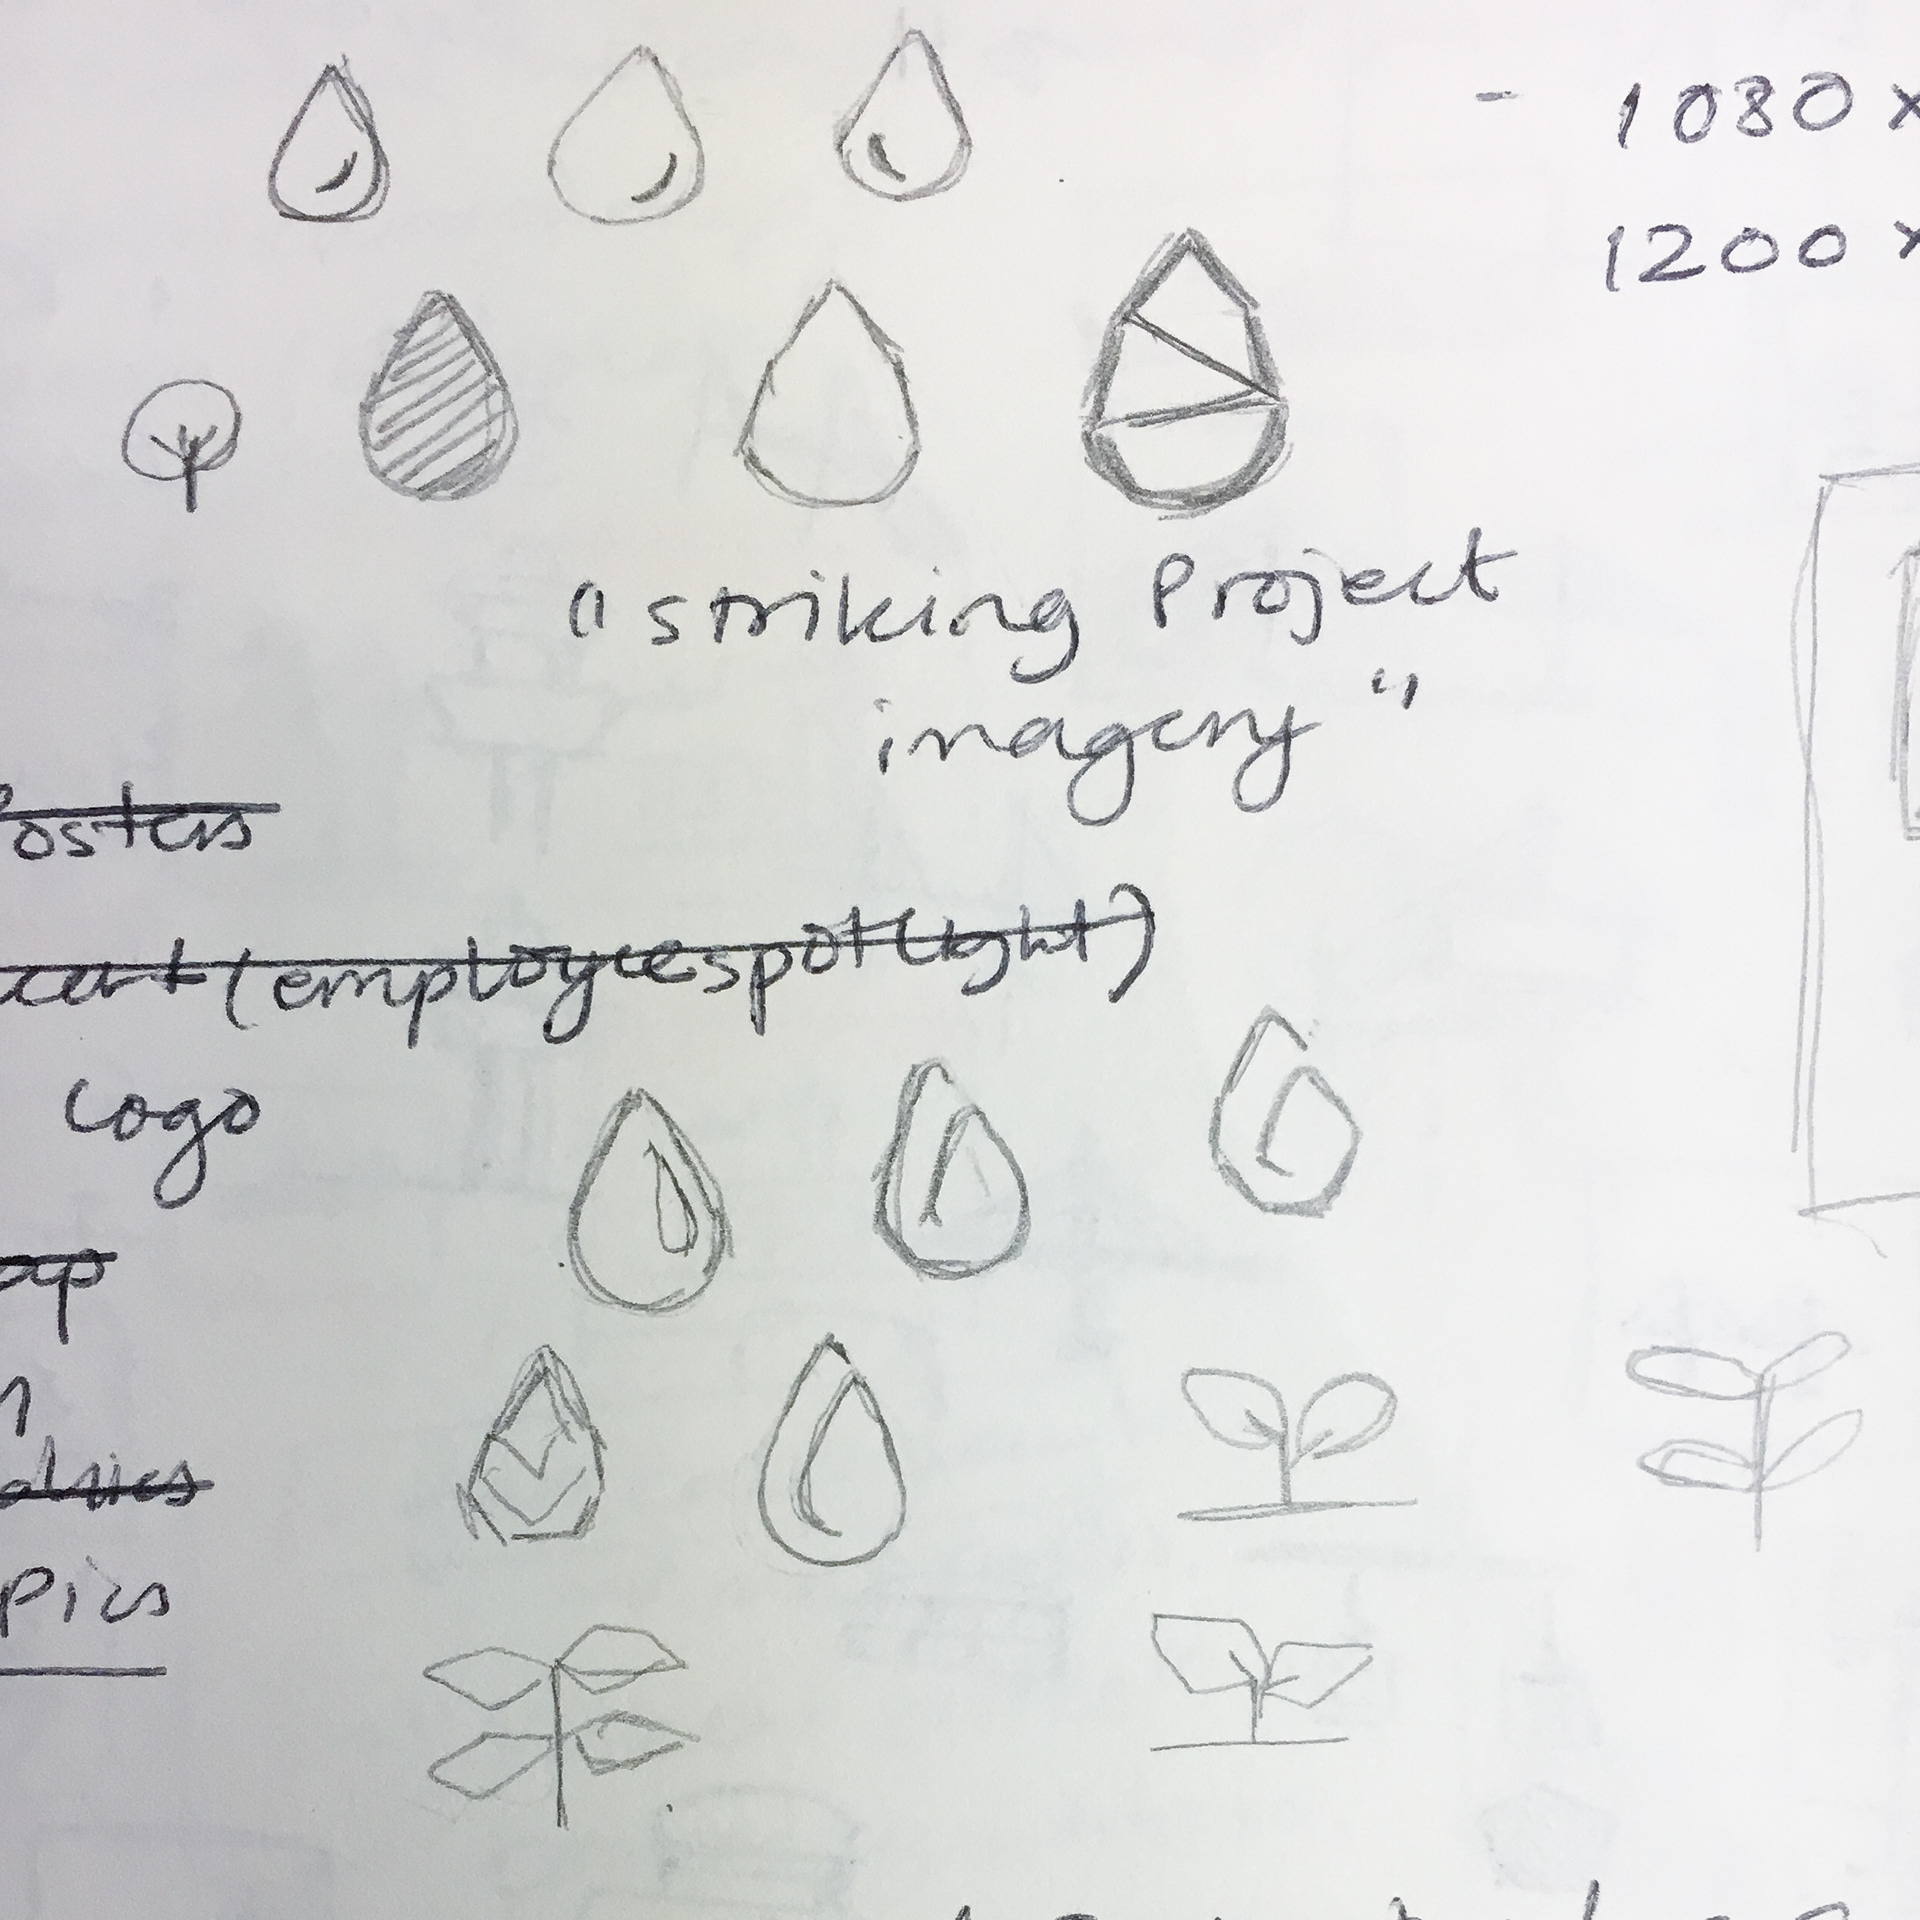 - 1080 x
1200 x
"striking Project
imagery"
Posters
(employee spotlight)
Logo
pics